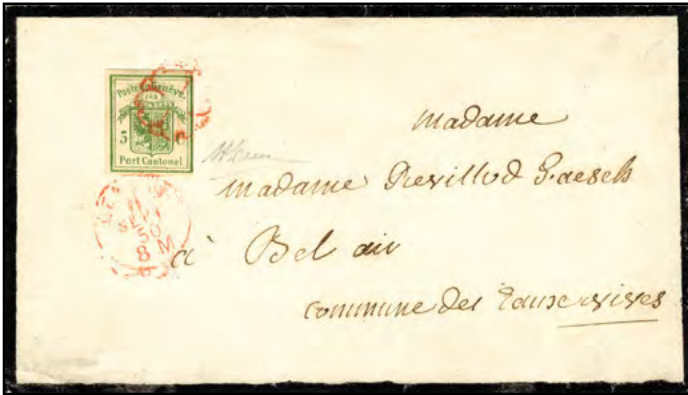 Poste de Genève.
5 C
Port Cantonal
50
8 M
madame
madame Revilliod
à Bel air
commune des Eauxvives